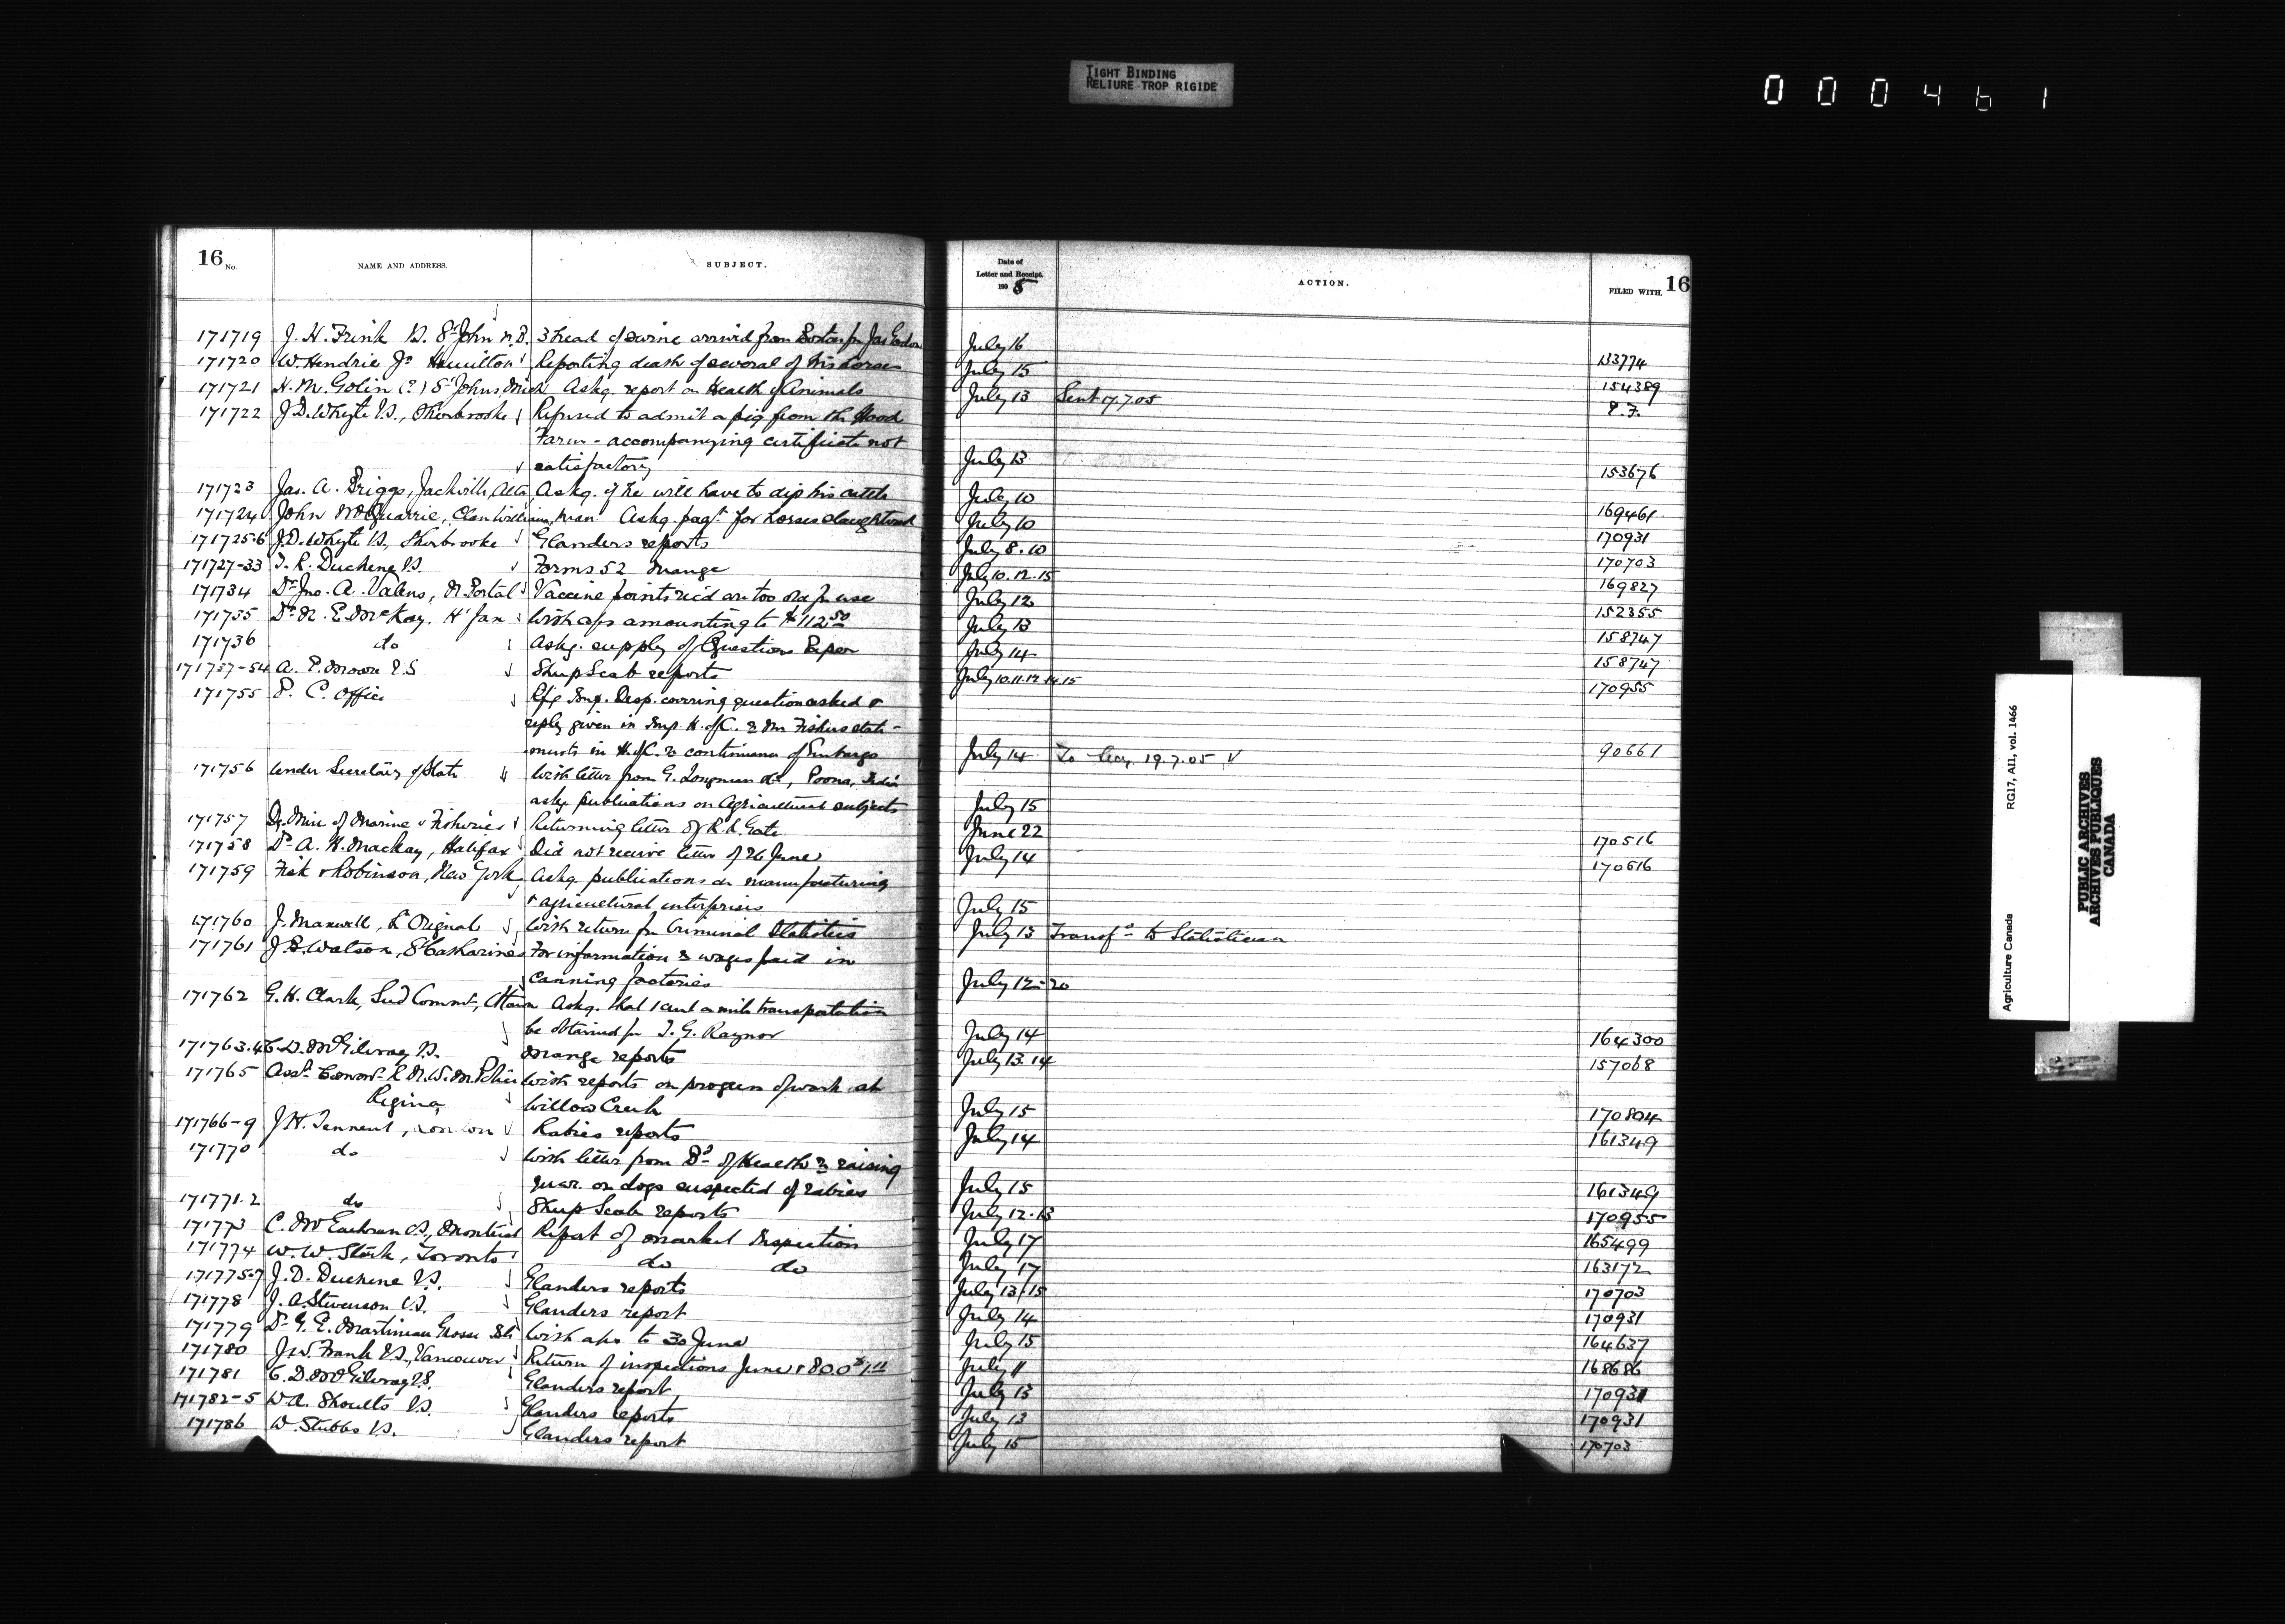 TIGHT BINDING
RELIURE TROP RIGIDE
000461
16 No. NAME AND ADDRESS. SUBJECT. Date of Letter and Receipt. 1905 ACTION. FILED WITH. 16
171719 J. H. Frink V.S. St John N.B. 3 head of swine arrived from Boston for Jas July 16
171720 W. Hendrie Jr Hamilton Reporting death of several of his horses July 15 153774
171721 N. M. Golin (?) St Johns, Mich Askg. report on Health of Animals July 13 Sent 17.7.05 154389
171722 J. D. Whyte V.S., Sherbrooke Refused to admit a pig from the Hood P.F.
Farm - accompanying certificate not
satisfactory July 13 153676
171723 Jas. A. Briggs, Jackville, Alta Askg. if he will have to dip his cattle July 10
171724 John McQuarrie, Clanwilliam, Man. Askg. payt. for horses slaughtered July 10 169461
171725-6 J. D. Whyte V.S., Sherbrooke Glanders reports July 8.10 170931
171727-33 T. R. Duchene V.S. Forms 52 Mange July 10.12.15 170703
171734 Dr Jno. A. Valens, N. Portal Vaccine points rec'd are too old for use July 12 169827
171735 Dr N. E. McKay, H'fax With a/cs amounting to $112.50 July 13 152355
171736 do Askg. supply of Question Paper July 14 158747
171737-54 A. E. Moore V.S Sheep Scab reports July 10.11.12.14.15 158747
171755 P. C. Office Rfg Imp. Desp. covering question asked & 170955
reply given in Imp. H. of C. re Mr Fishers state-
ments in H. of C. re continuance of Embargo July 14 To 19.7.05 90661
171756 Under Secretary of State With letter from G. Longman &c, Poona, India
askg publications on Agricultural subjects July 15
171757 Dy. Min of Marine & Fisheries Returning letter of R. R. Gate June 22
171758 Dr A. H. Mackay, Halifax Did not receive letter of 26 June July 14 170516
171759 Fisk & Robinson, New York Askg. publications on manufacturing 170516
& agricultural enterprises July 15
171760 J. Maxwell, L'Orignal With return for Criminal Statistics July 13 Transfd to Statistician
171761 J. S. Watson, St Catharines For information re wages paid in
canning factories July 12-20
171762 G. H. Clark, Seed Commr, Ottawa Askg. that 1 cent a mile transportation
be obtained for T. G. Raynor July 14 164300
171763.4 C. D. McGilvray V.S. Mange reports July 13.14 157068
171765 Asst Commr R.N.W.M. Police With reports on progress of work at
Regina Willow Creek July 15 170804
171766-9 J. H. Tennent, London Rabies reports July 14 161349
171770 do With letter from Bd of Health re raising
quar. on dogs suspected of rabies July 15 161349
171771.2 do Sheep Scab reports July 12.13 170955
171773 C. McEachran V.S., Montreal Report of Market Inspection July 17 165499
171774 W. W. Stork, Toronto do do July 17 163172
171775-7 J. D. Duchene V.S. Glanders reports July 13/15 170703
171778 J. A. Stevenson V.S. Glanders report July 14 170931
171779 Dr G. E. Martineau Grosse Isle With a/cs to 30 June July 15 164637
171780 J. W. Frank V.S., Vancouver Return of inspections June July 11 168686
171781 C. D. McGilvray V.S. Glanders report July 13 170931
171782-5 W. A. Shoults V.S. Glanders reports July 13 170931
171786 W. Stubbs V.S. Glanders report July 15 170703
Agriculture Canada RG17, AII, vol. 1466
PUBLIC ARCHIVES
ARCHIVES PUBLIQUES
CANADA